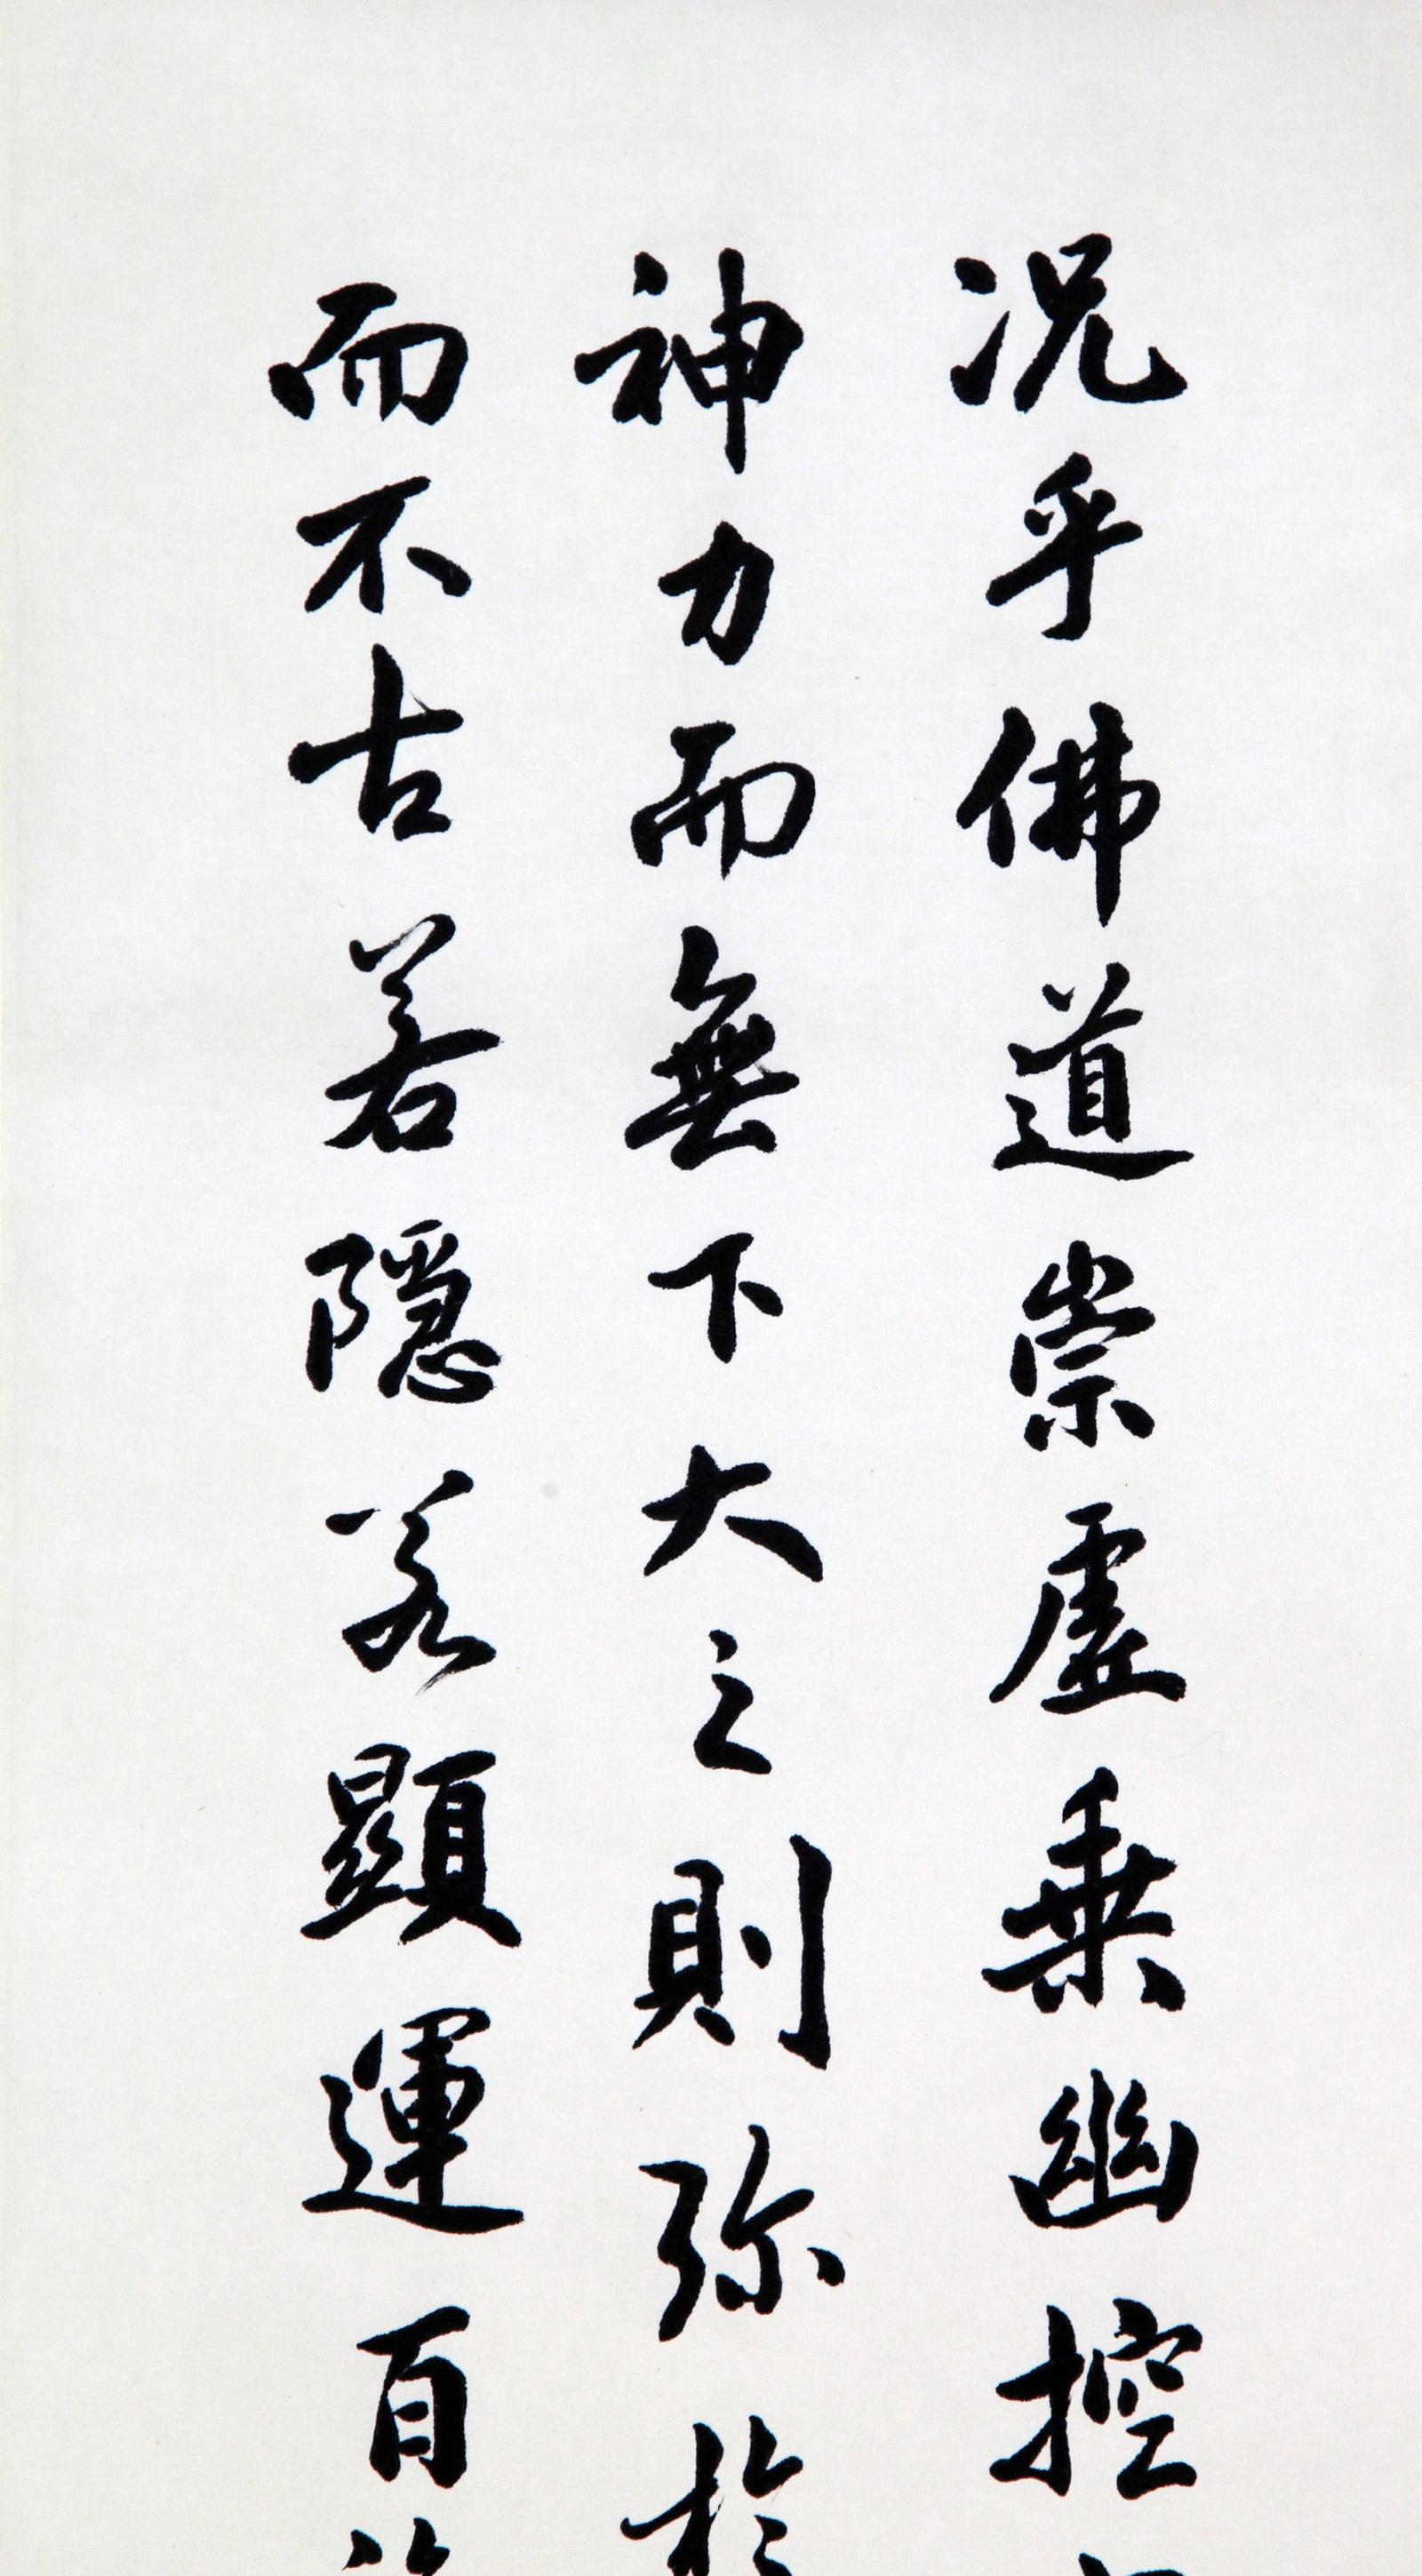 况乎佛道崇虛乗幽控
神力而無下大之則弥於
而不古若隱若顯運百